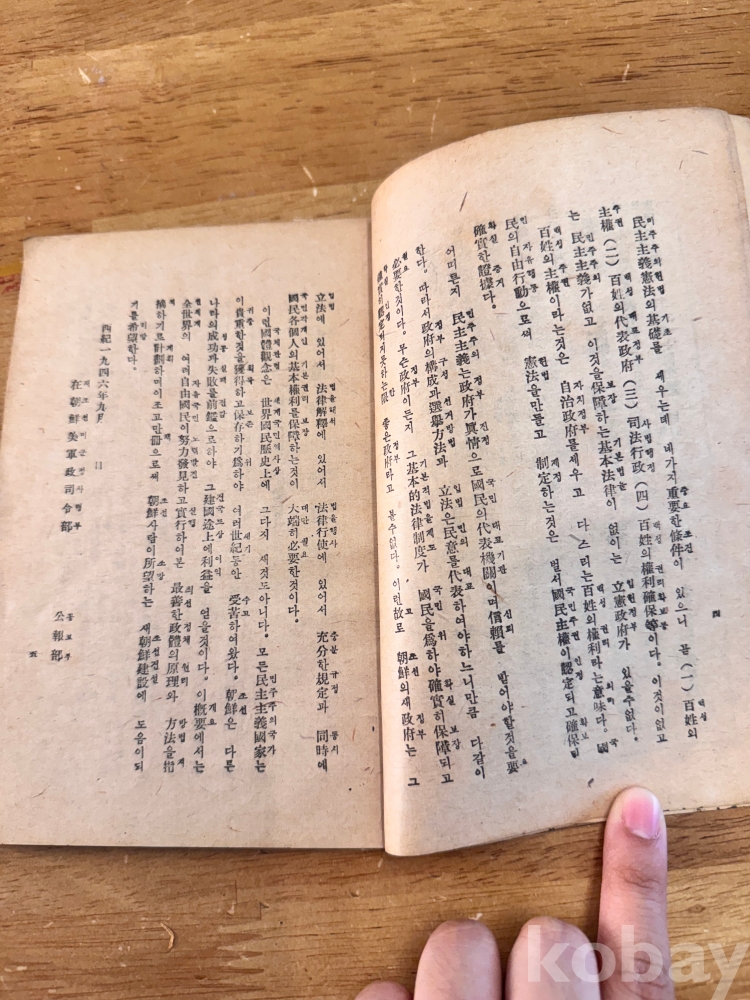 民主主義憲法의基礎를 세우는데 네가지重要한條件이 있으니 곧 (一) 百姓의
主權 (二) 百姓의代表政府 (三) 司法行政 (四) 百姓의權利確保等이다. 이것이없고
는 民主主義가없고 이것을保障하는基本法律이 없이는 立憲政府가 있을수없다.
百姓의主權이라는것은 自治政府를세우고 다스리는百姓의權利라는意味다. 國
民의自由行動으로써 憲法을만들고 制定하는것은 벌서國民主權이認定되고確保된
確實한證據다.
어떠튼지 民主主義는政府가眞情으로國民의代表機關이며信賴를 받어야할것을要
한다. 따라서政府의構成과選擧方法과 立法은民意를代表하여야하느니만큼 다같이
必要한것이다. 무슨政府이든지 그基本的法律制度가 國民을爲하야確實히保障되고
確實히認定되지못하는限 좋은政府라고 볼수없다. 이런故로 朝鮮의새政府는 그
四
立法에 있어서 法律解釋에 있어서 法律行使에 있어서 充分한規定과 同時에
國民各個人의基本權利를保障하는것이 大端히必要한것이다.
이런國體觀念은 世界國民歷史上에 그다지 새것도아니다. 모든民主主義國家는
이貴重한것을獲得하고保存하기爲하야 여러世紀동안 受苦하여왔다. 朝鮮은 다른
나라의成功과失敗를前鑑으로하야 그建國途上에利益을 얻을것이다. 이槪要에서는
全世界의 여러自由國民이努力發見하고實行하여본 最善한政體의原理와 方法을指
摘하기로計劃하며이조고만冊으로써 朝鮮사람이所望하는 새朝鮮建設에 도움이되
기를希望한다.
西紀一九四六年九月 日
在朝鮮美軍政司令部
公報部
五
kobay